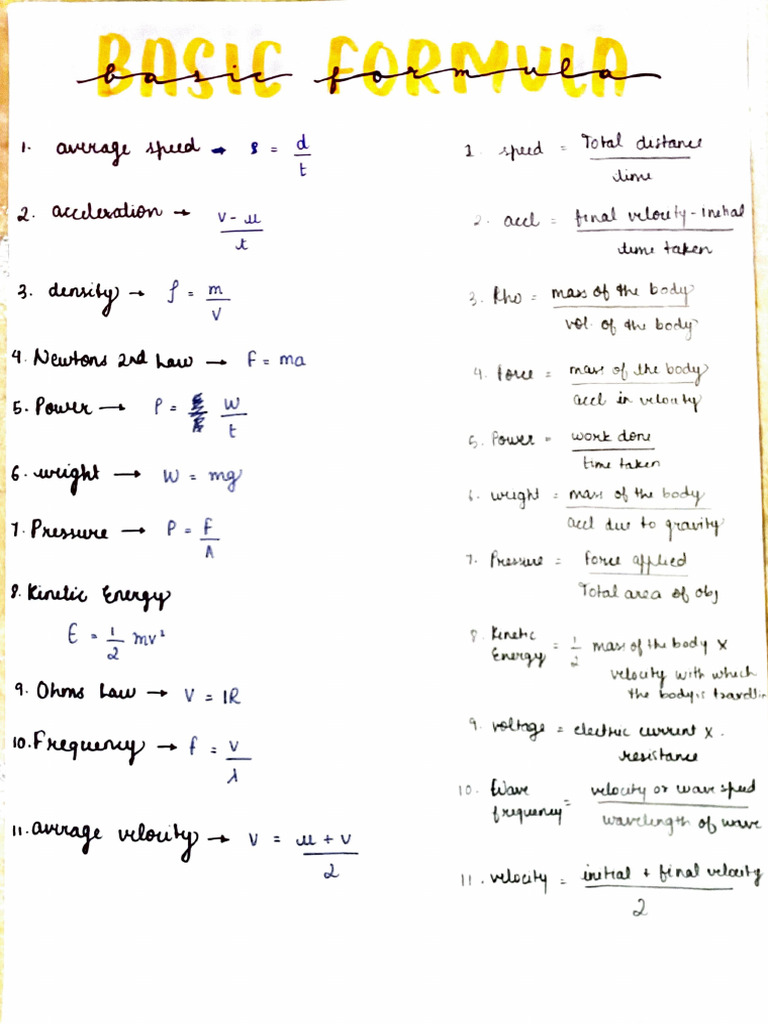 BASIC FORMULA
basic formula
1. average speed → s = d/t
2. acceleration → v-u/t
3. density → ρ = m/V
4. Newtons 2nd Law → F = ma
5. Power → P = W/t
6. weight → W = mg
7. Pressure → P = F/A
8. Kinetic Energy
E = 1/2 mv²
9. Ohms Law → V = IR
10. Frequency → f = v/λ
11. average velocity → V = u + v/2
1. speed = Total distance
time
2. accl = final velocity - initial
time taken
3. Rho = mass of the body
vol. of the body
4. Force = mass of the body
accl in velocity
5. Power = work done
time taken
6. weight = mass of the body
accl due to gravity
7. Pressure = Force applied
Total area of obj
8. Kinetic Energy = 1/2 mass of the body x
velocity with which
the body is travellin
9. voltage = electric current x.
resistance
10. Wave frequency = velocity or wave speed
wavelength of wave
11. velocity = initial + final velocity
2